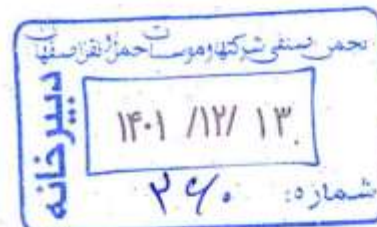 انجمن صنفی شرکتها و موسسات حمل و نقل اصفهان
دبیرخانه
۱۴۰۱ /۱۲/ ۱۳
شماره: ۳۶۰